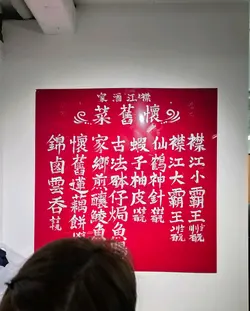 襟江酒家
懷舊菜
襟江小霸王
襟江大霸王
仙鶴神針
蝦子柚皮
古法缽仔焗魚
家鄉煎釀鯪魚
懷舊蓮藕餅
錦鹵雲吞